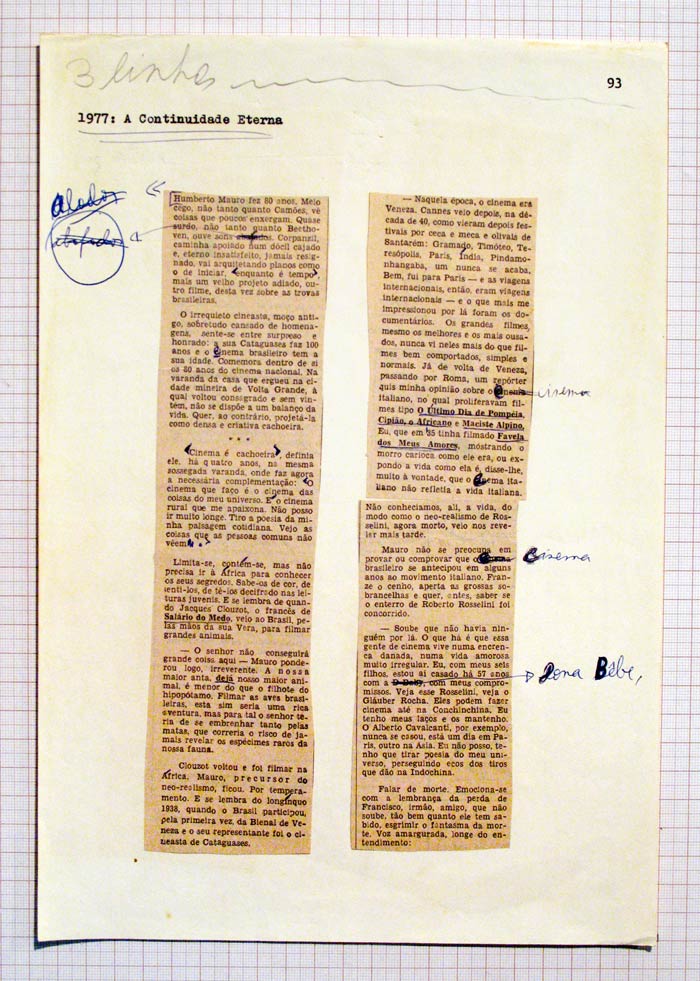 3 linhas
93
1977: A Continuidade Eterna
Humberto Mauro fez 80 anos. Meio
cego, não tanto quanto Camões, vê
coisas que poucos enxergam. Quase
surdo, não tanto quanto Beetho-
ven, ouve sons
caminha apoiado num dócil cajado
e, eterno insatisfeito, jamais resig-
nado, vai arquitetando planos como
o de iniciar, enquanto é tempo,
mais um velho projeto adiado, ou-
tro filme, desta vez sobre as trovas
brasileiras.
O irrequieto cineasta, moço anti-
go, sobretudo cansado de homena-
gens, sente-se entre surpreso e
honrado: a sua Cataguases faz 100
anos e o Cinema brasileiro tem a
sua idade. Comemora dentro de si
os 80 anos do cinema nacional. Na
varanda da casa que ergueu na ci-
dade mineira de Volta Grande, à
qual voltou consagrado e sem vin-
tém, não se dispõe a um balanço da
vida. Quer, ao contrário, projetá-la
como densa e criativa cachoeira.
* * *
"Cinema é cachoeira", definia
ele, há quatro anos, na mesma
sossegada varanda, onde faz agora
a necessária complementação: "O
cinema que faço é o cinema das
coisas do meu universo. E o cinema
rural que me apaixona. Não posso
ir muito longe. Tiro a poesia da mi-
nha paisagem cotidiana. Vejo as
coisas que as pessoas comuns não
vêem".
Limita-se, contém-se, mas não
precisa ir à África para conhecer
os seus segredos. Sabe-os de cor, de
senti-los, de tê-los decifrado nas lei-
turas juvenis. E se lembra de quan-
do Jacques Clouzot, o francês de
Salário do Medo, veio ao Brasil, pe-
las mãos da sua Vera, para filmar
grandes animais.
— O senhor não conseguirá
grande coisa aqui — Mauro ponde-
rou logo, irreverente. A nossa
maior anta, dejá nosso maior ani-
mal, é menor do que o filhote do
hipopótamo. Filmar as aves brasi-
leiras, esta sim seria uma rica
aventura, mas para tal o senhor te-
ria de se embrenhar tanto pelas
matas, que correria o risco de ja-
mais revelar os espécimes raros da
nossa fauna.
Clouzot voltou e foi filmar na
África. Mauro, precursor do
neo-realismo, ficou. Por tempera-
mento. E se lembra do longínquo
1938, quando o Brasil participou,
pela primeira vez, da Bienal de Ve-
neza e o seu representante foi o ci-
neasta de Cataguases.
— Naquela época, o cinema era
Veneza. Cannes veio depois, na dé-
cada de 40, como vieram depois fes-
tivais por ceca e meca e olivais de
Santarém: Gramado, Timóteo, Te-
resópolis, Paris, Índia, Pindamo-
nhangaba, um nunca se acaba,
Bem, fui para Paris — e as viagens
internacionais, então, eram viagens
internacionais — e o que mais me
impressionou por lá foram os do-
cumentários. Os grandes filmes,
mesmo os melhores e os mais ousa-
dos, nunca vi neles mais do que fil-
mes bem comportados, simples e
normais. Já de volta de Veneza,
passando por Roma, um repórter
quis minha opinião sobre o cinema
italiano, no qual proliferavam fil-
mes tipo O Último Dia de Pompéia,
Cipião, o Africano e Maciste Alpino,
Eu, que em 35 tinha filmado Favela
dos Meus Amores, mostrando o
morro carioca como ele era, ou ex-
pondo a vida como ela é, disse-lhe,
muito à vontade, que o Cinema ita-
liano não refletia a vida italiana.
Não conhecíamos, ali, a vida, do
modo como o neo-realismo de Ros-
selini, agora morto, veio nos reve-
ler mais tarde.
Mauro não se preocupa em
provar ou comprovar que o Cinema
brasileiro se antecipou em alguns
anos ao movimento italiano. Fran-
ze o cenho, aperta as grossas so-
brancelhas e quer, antes, saber se
o enterro de Roberto Rosselini foi
concorrido.
— Soube que não havia nin-
guém por lá. O que há é que essa
gente de cinema vive numa encren-
ca danada, numa vida amorosa
muito irregular. Eu, com meus seis
filhos, estou aí casado há 57 anos
com a Dona Bêbe, com meus compro-
missos. Veja esse Rosselini, veja o
Gláuber Rocha. Eles podem fazer
cinema até na Conchinchina. Eu
tenho meus laços e os mantenho.
O Alberto Cavalcanti, por exemplo,
nunca se casou, está um dia em Pa-
ris, outro na Ásia. Eu não posso, te-
nho que tirar poesia do meu uni-
verso, perseguindo ecos dos tiros
que dão na Indochina.
Falar de morte. Emociona-se
com a lembrança da perda de
Francisco, irmão, amigo, que não
soube, tão bem quanto ele tem sa-
bido, esgrimir o fantasma da mor-
te. Voz amargurada, longe do en-
tendimento: